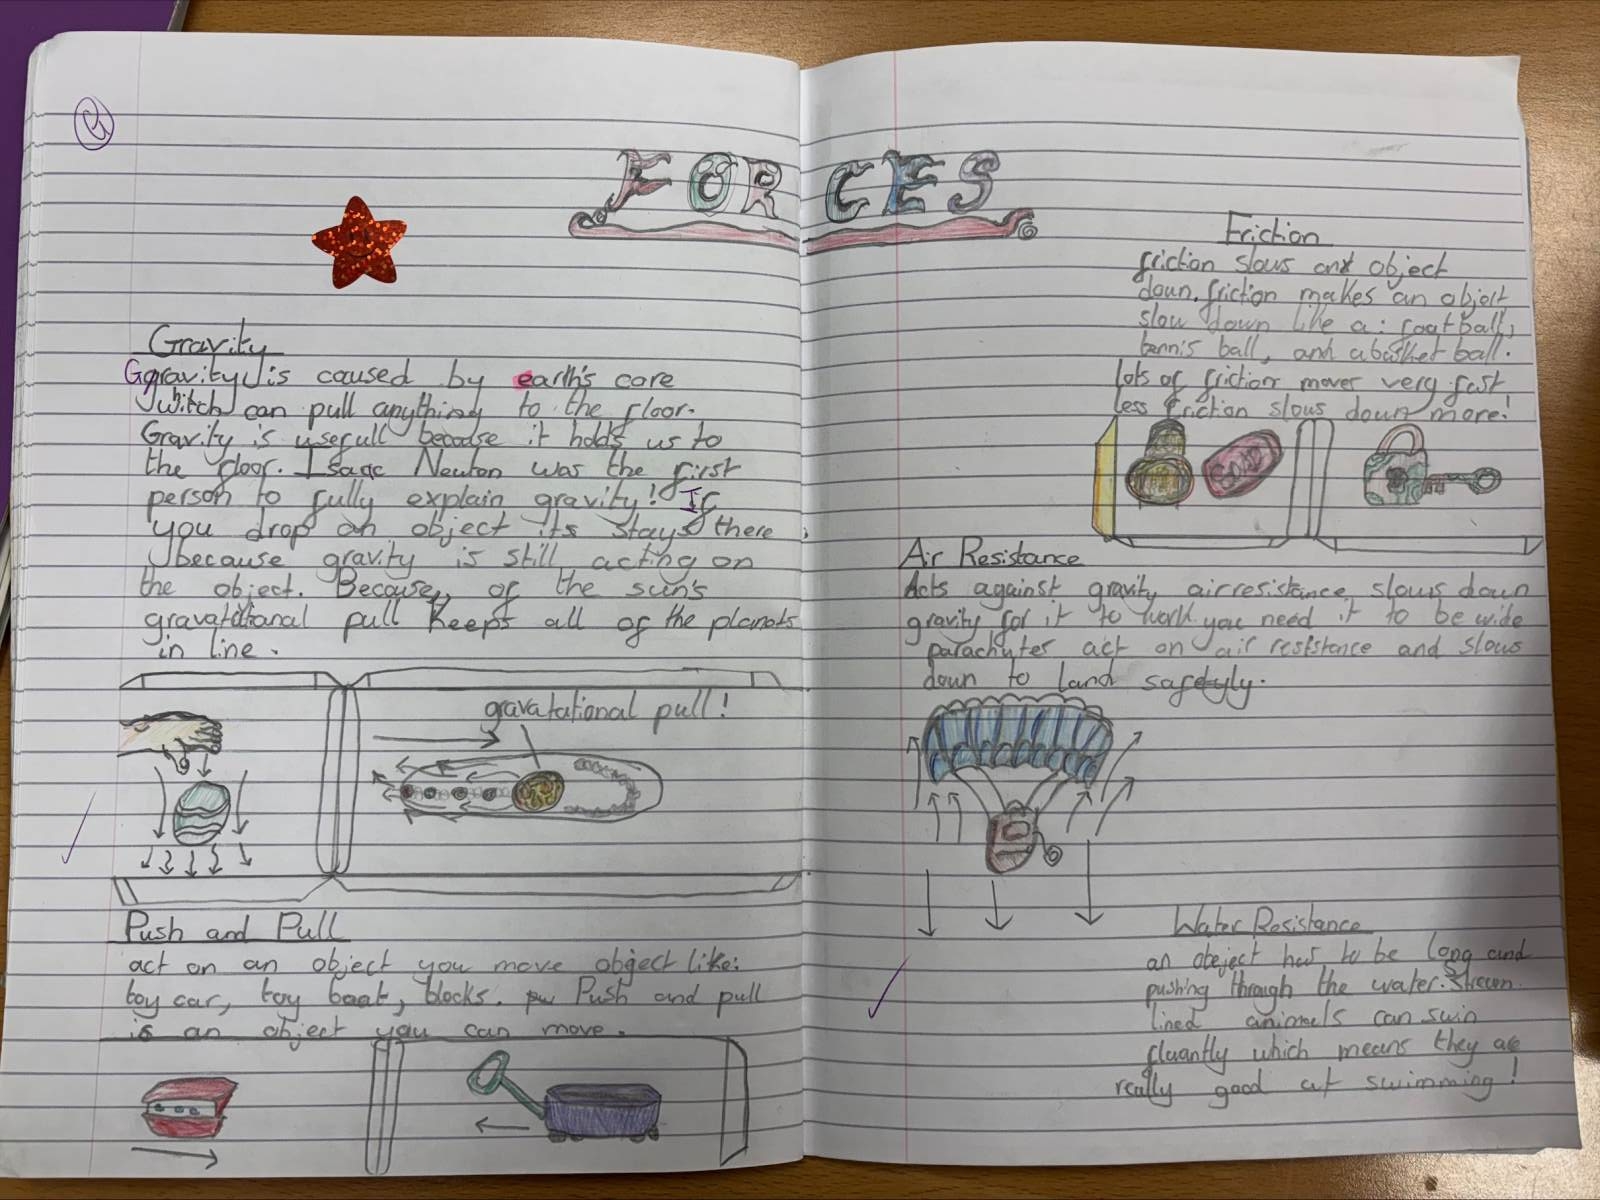 G
FORCES
Gravity
Ggravity is caused by earth's core
witch can pull anything to the floor.
Gravity is usefull because it holds us to
the floor. Isaac Newton was the first
person to fully explain gravity! If
you drop an object its stays there
because gravity is still acting on
the object. Because, of the sun's
gravatational pull keeps all of the planets
in line.
gravatational pull!
Push and Pull
act on an object you move object like:
toy car, toy boat, blocks. pu Push and pull
is an object you can move.
Friction
friction slows an object
down. friction makes an object
slow down like a: football,
tennis ball, and a basket ball.
lots of friction moves very fast
less friction slows down more!
SOAP
Air Resistance
Acts against gravity air resistance slows down
gravity for it to work you need it to be wide
parachutes act on air resistence and slows
down to land safetyly.
Water Resistance
an obeject has to be long and
pushing through the water. Stream
lined animels can swin
fluantly which means they are
really good at swimming!